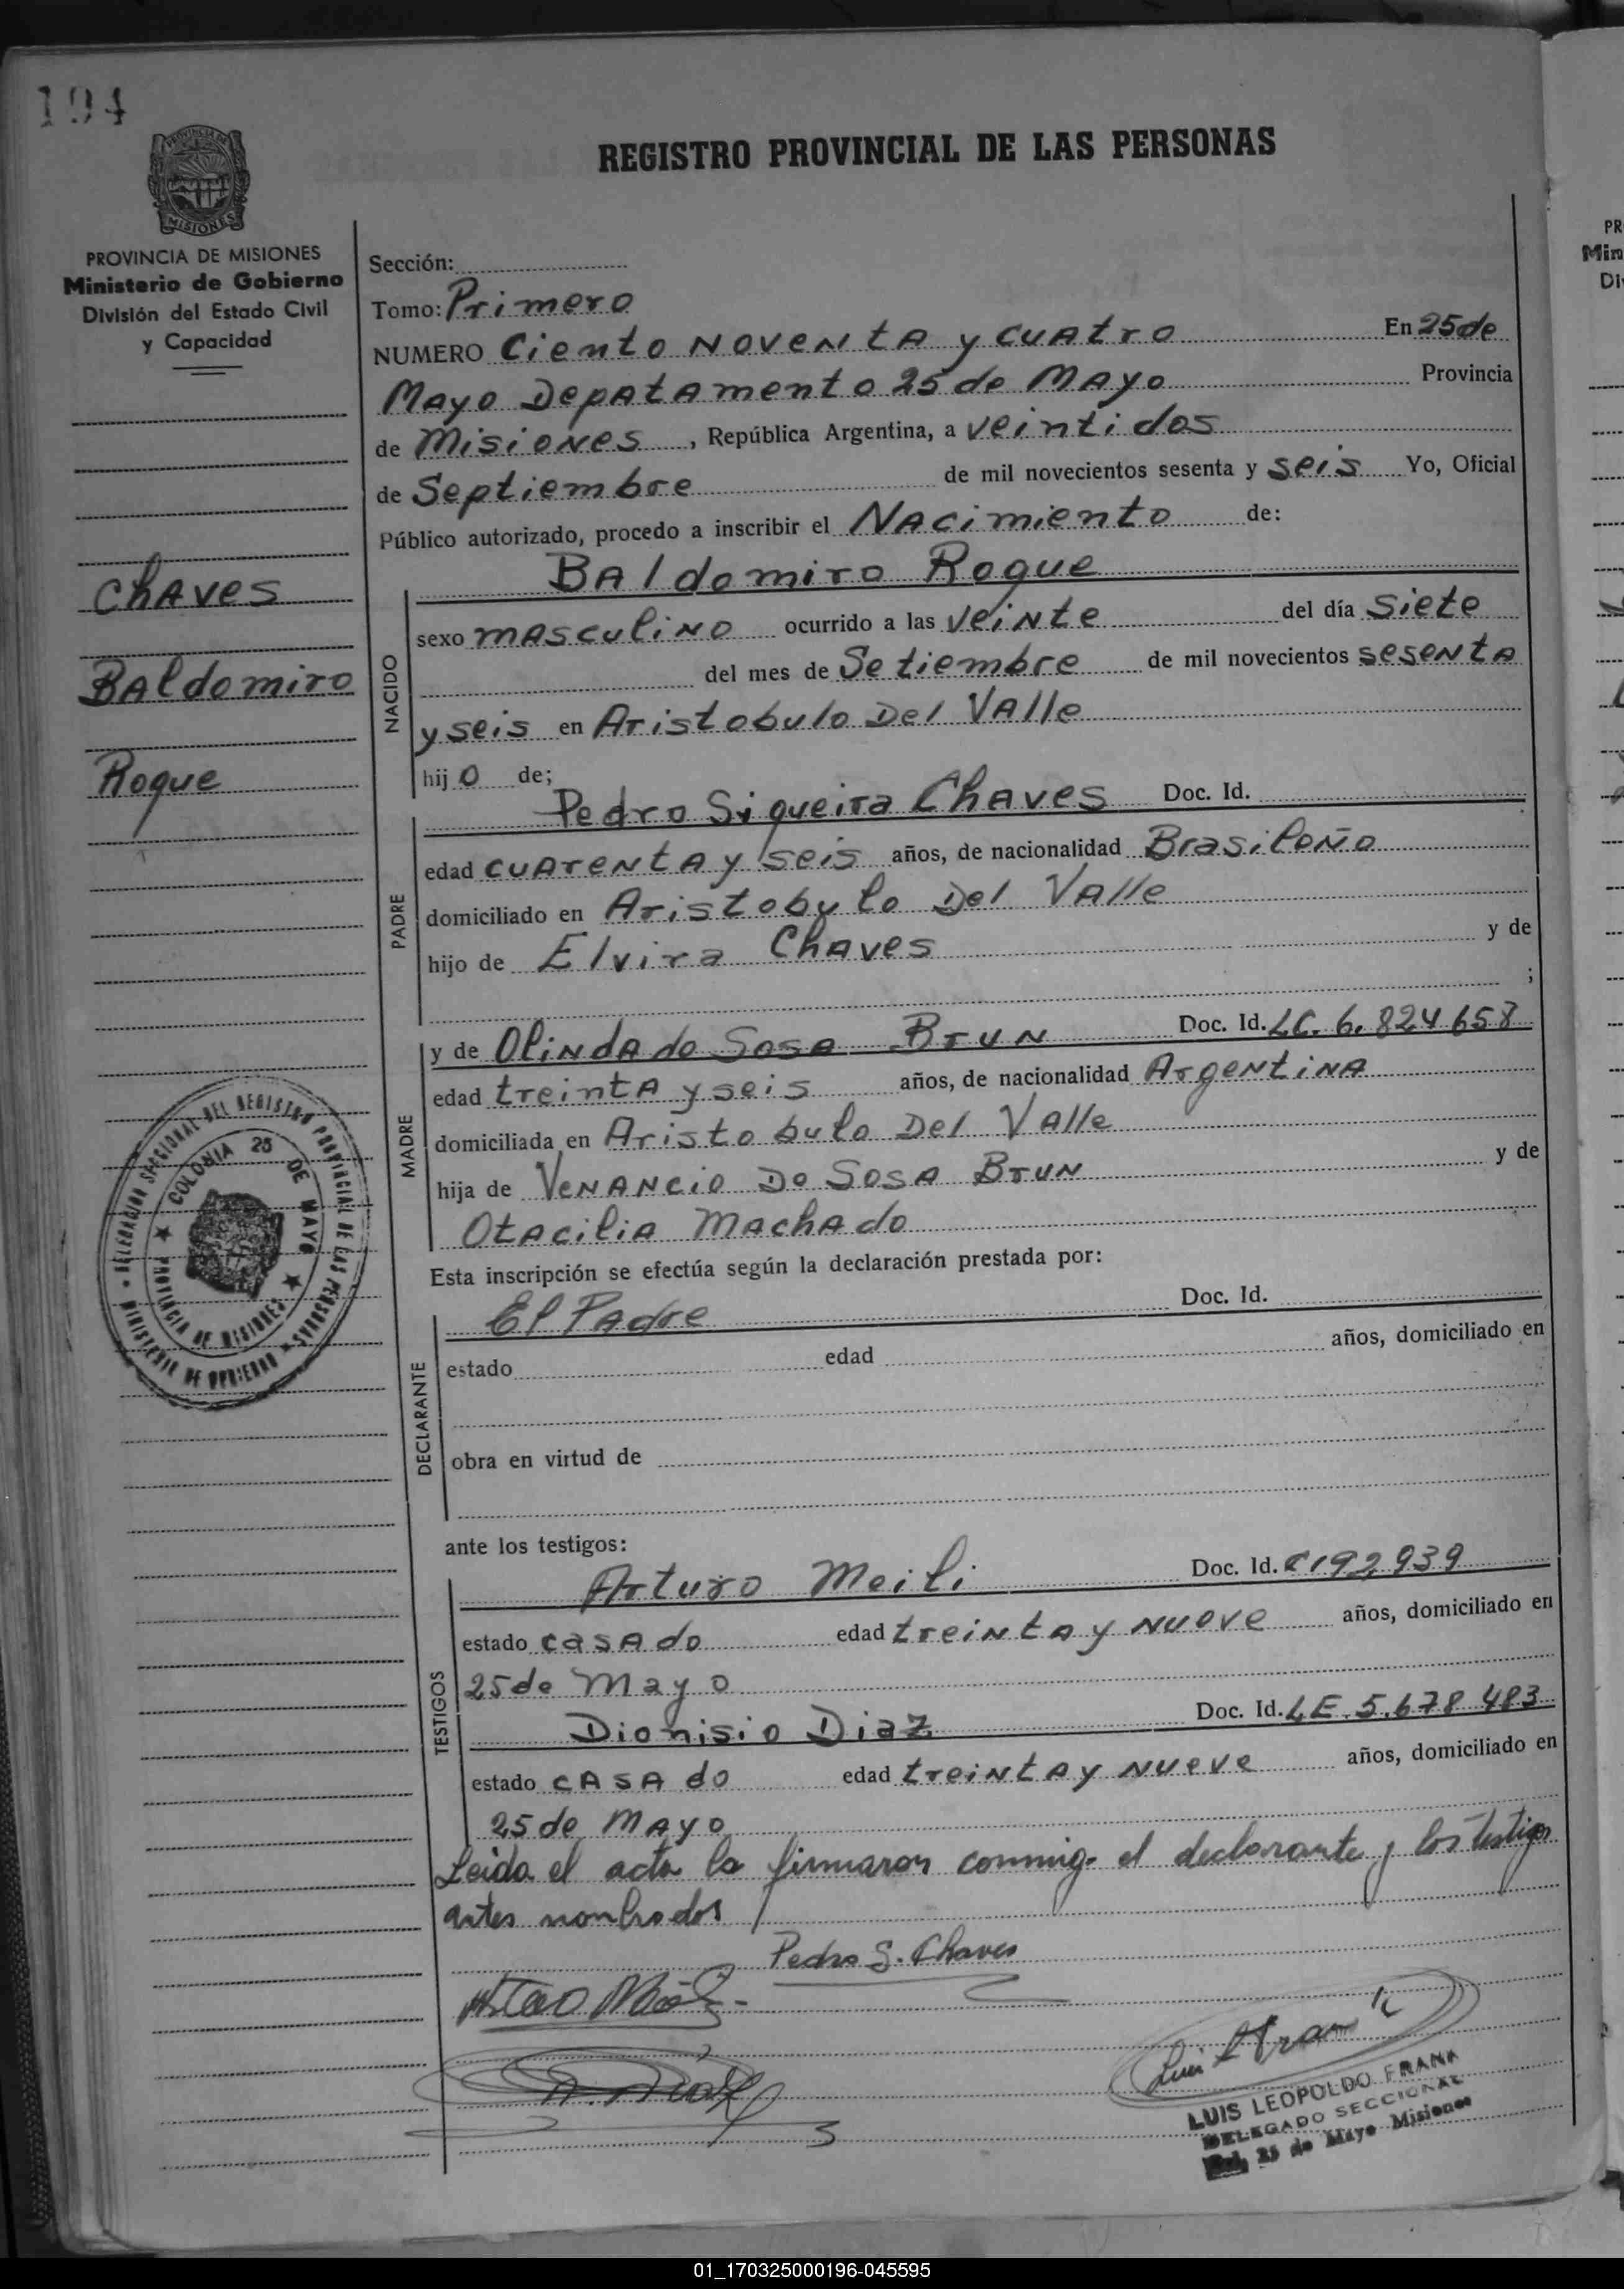 194
REGISTRO PROVINCIAL DE LAS PERSONAS
PROVINCIA DE MISIONES
MISIONES
PROVINCIA DE MISIONES
Ministerio de Gobierno
División del Estado Civil
y Capacidad
Chaves
Baldomiro
Roque
DELEGACION SECCIONAL DEL REGISTRO PROVINCIAL DE LAS PERSONAS
MINISTERIO DE GOBIERNO
COLONIA 25 DE MAYO
PROVINCIA DE MISIONES
Sección:
Tomo: Primero
NUMERO Ciento Noventa y cuatro En 25 de
Mayo Depatamento 25 de Mayo Provincia
de Misiones, República Argentina, a veintidos
de Septiembre de mil novecientos sesenta y seis Yo, Oficial
Público autorizado, procedo a inscribir el Nacimiento de:
Baldomiro Roque
NACIDO
sexo masculino ocurrido a las veinte del día siete
del mes de Setiembre de mil novecientos sesenta
y seis en Aristobulo Del Valle
hijo de;
Pedro Siqueira Chaves Doc. Id.
PADRE
edad cuarenta y seis años, de nacionalidad Brasileño
domiciliado en Aristobulo Del Valle
hijo de Elvira Chaves y de
;
y de Olinda do Sosa Brun Doc. Id. LC. 6.824658
MADRE
edad treinta y seis años, de nacionalidad Argentina
domiciliada en Aristobulo Del Valle
hija de Venancio Do Sosa Brun y de
Otacilia Machado
Esta inscripción se efectúa según la declaración prestada por:
El Padre Doc. Id.
DECLARANTE
estado edad años, domiciliado en
obra en virtud de
ante los testigos:
Arturo Meili Doc. Id. 192,939
TESTIGOS
estado casado edad treinta y nueve años, domiciliado en
25 de Mayo
Dionisio Diaz Doc. Id. LE. 5.678.483
estado casado edad treinta y nueve años, domiciliado en
25 de Mayo
Leida el acta la firmaron conmigo el declarante y los testigos
antes nombrados
Pedro S. Chaves
LUIS LEOPOLDO FRANK
DELEGADO SECCIONAL
25 de Mayo Misiones
01_170325000196-045595